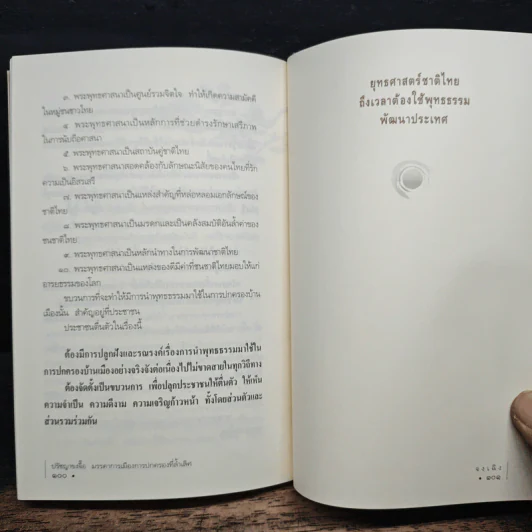 ๓. พระพุทธศาสนาเป็นศูนย์รวมจิตใจ ทำให้เกิดความสามัคคี
ในหมู่ชนชาวไทย
๔. พระพุทธศาสนาเป็นหลักการที่ช่วยดำรงรักษาเสรีภาพ
ในการนับถือศาสนา
๕. พระพุทธศาสนาเป็นสถาบันคู่ชาติไทย
๖. พระพุทธศาสนาสอดคล้องกับลักษณะนิสัยของคนไทยที่รัก
ความเป็นอิสรเสรี
๗. พระพุทธศาสนาเป็นแหล่งสำคัญที่หล่อหลอมเอกลักษณ์ของ
ชาติไทย
๘. พระพุทธศาสนาเป็นมรดกและเป็นคลังสมบัติอันล้ำค่าของ
ชนชาติไทย
๙. พระพุทธศาสนาเป็นหลักนำทางในการพัฒนาชาติไทย
๑๐. พระพุทธศาสนาเป็นแหล่งของดีมีค่าที่ชนชาติไทยมอบให้แก่
อารยธรรมของโลก
ขบวนการที่จะทำให้มีการนำพุทธธรรมมาใช้ในการปกครองบ้าน
เมืองนั้น สำคัญอยู่ที่ประชาชน
ประชาชนตื่นตัวในเรื่องนี้
ต้องมีการปลูกฝังและรณรงค์เรื่องการนำพุทธธรรมมาใช้ใน
การปกครองบ้านเมืองอย่างจริงจังต่อเนื่องไปไม่ขาดสายในทุกวิถีทาง
ต้องจัดตั้งเป็นขบวนการ เพื่อปลุกประชาชนให้ตื่นตัว ให้เห็น
ความจำเป็น ความดีงาม ความเจริญก้าวหน้า ทั้งโดยส่วนตัวและ
ส่วนรวมร่วมกัน
ปรัชญาขงจื๊อ มรรคาการเมืองการปกครองที่ล้ำเลิศ
๑๐๐ •
ยุทธศาสตร์ชาติไทย
ถึงเวลาต้องใช้พุทธธรรม
พัฒนาประเทศ
• ๑๐๑